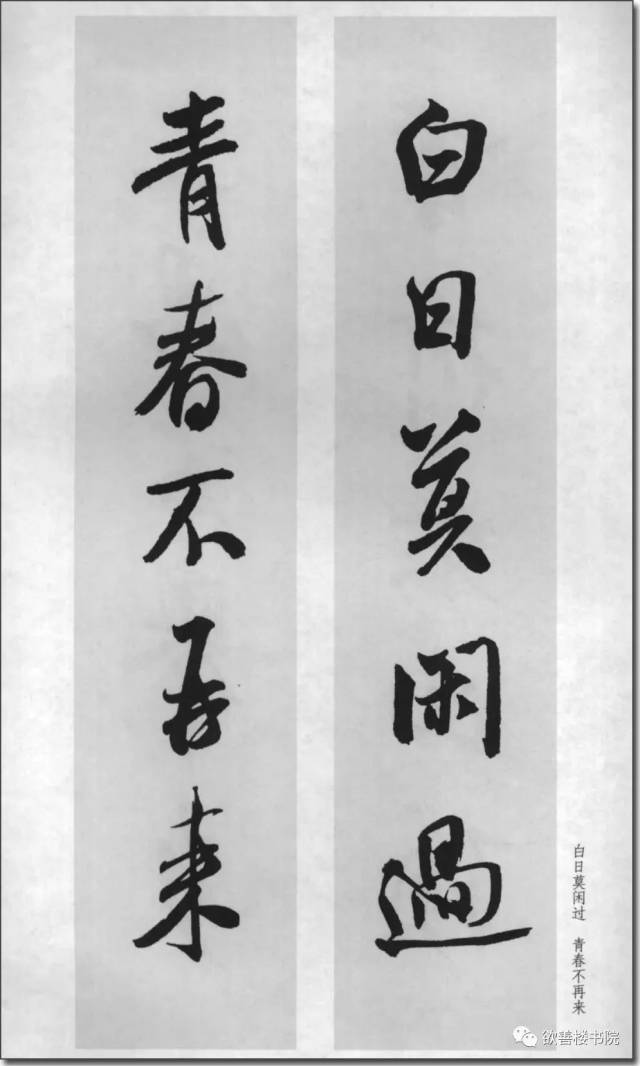 白日莫闲過
青春不再来
白日莫闲过 青春不再来
欲善楼书院